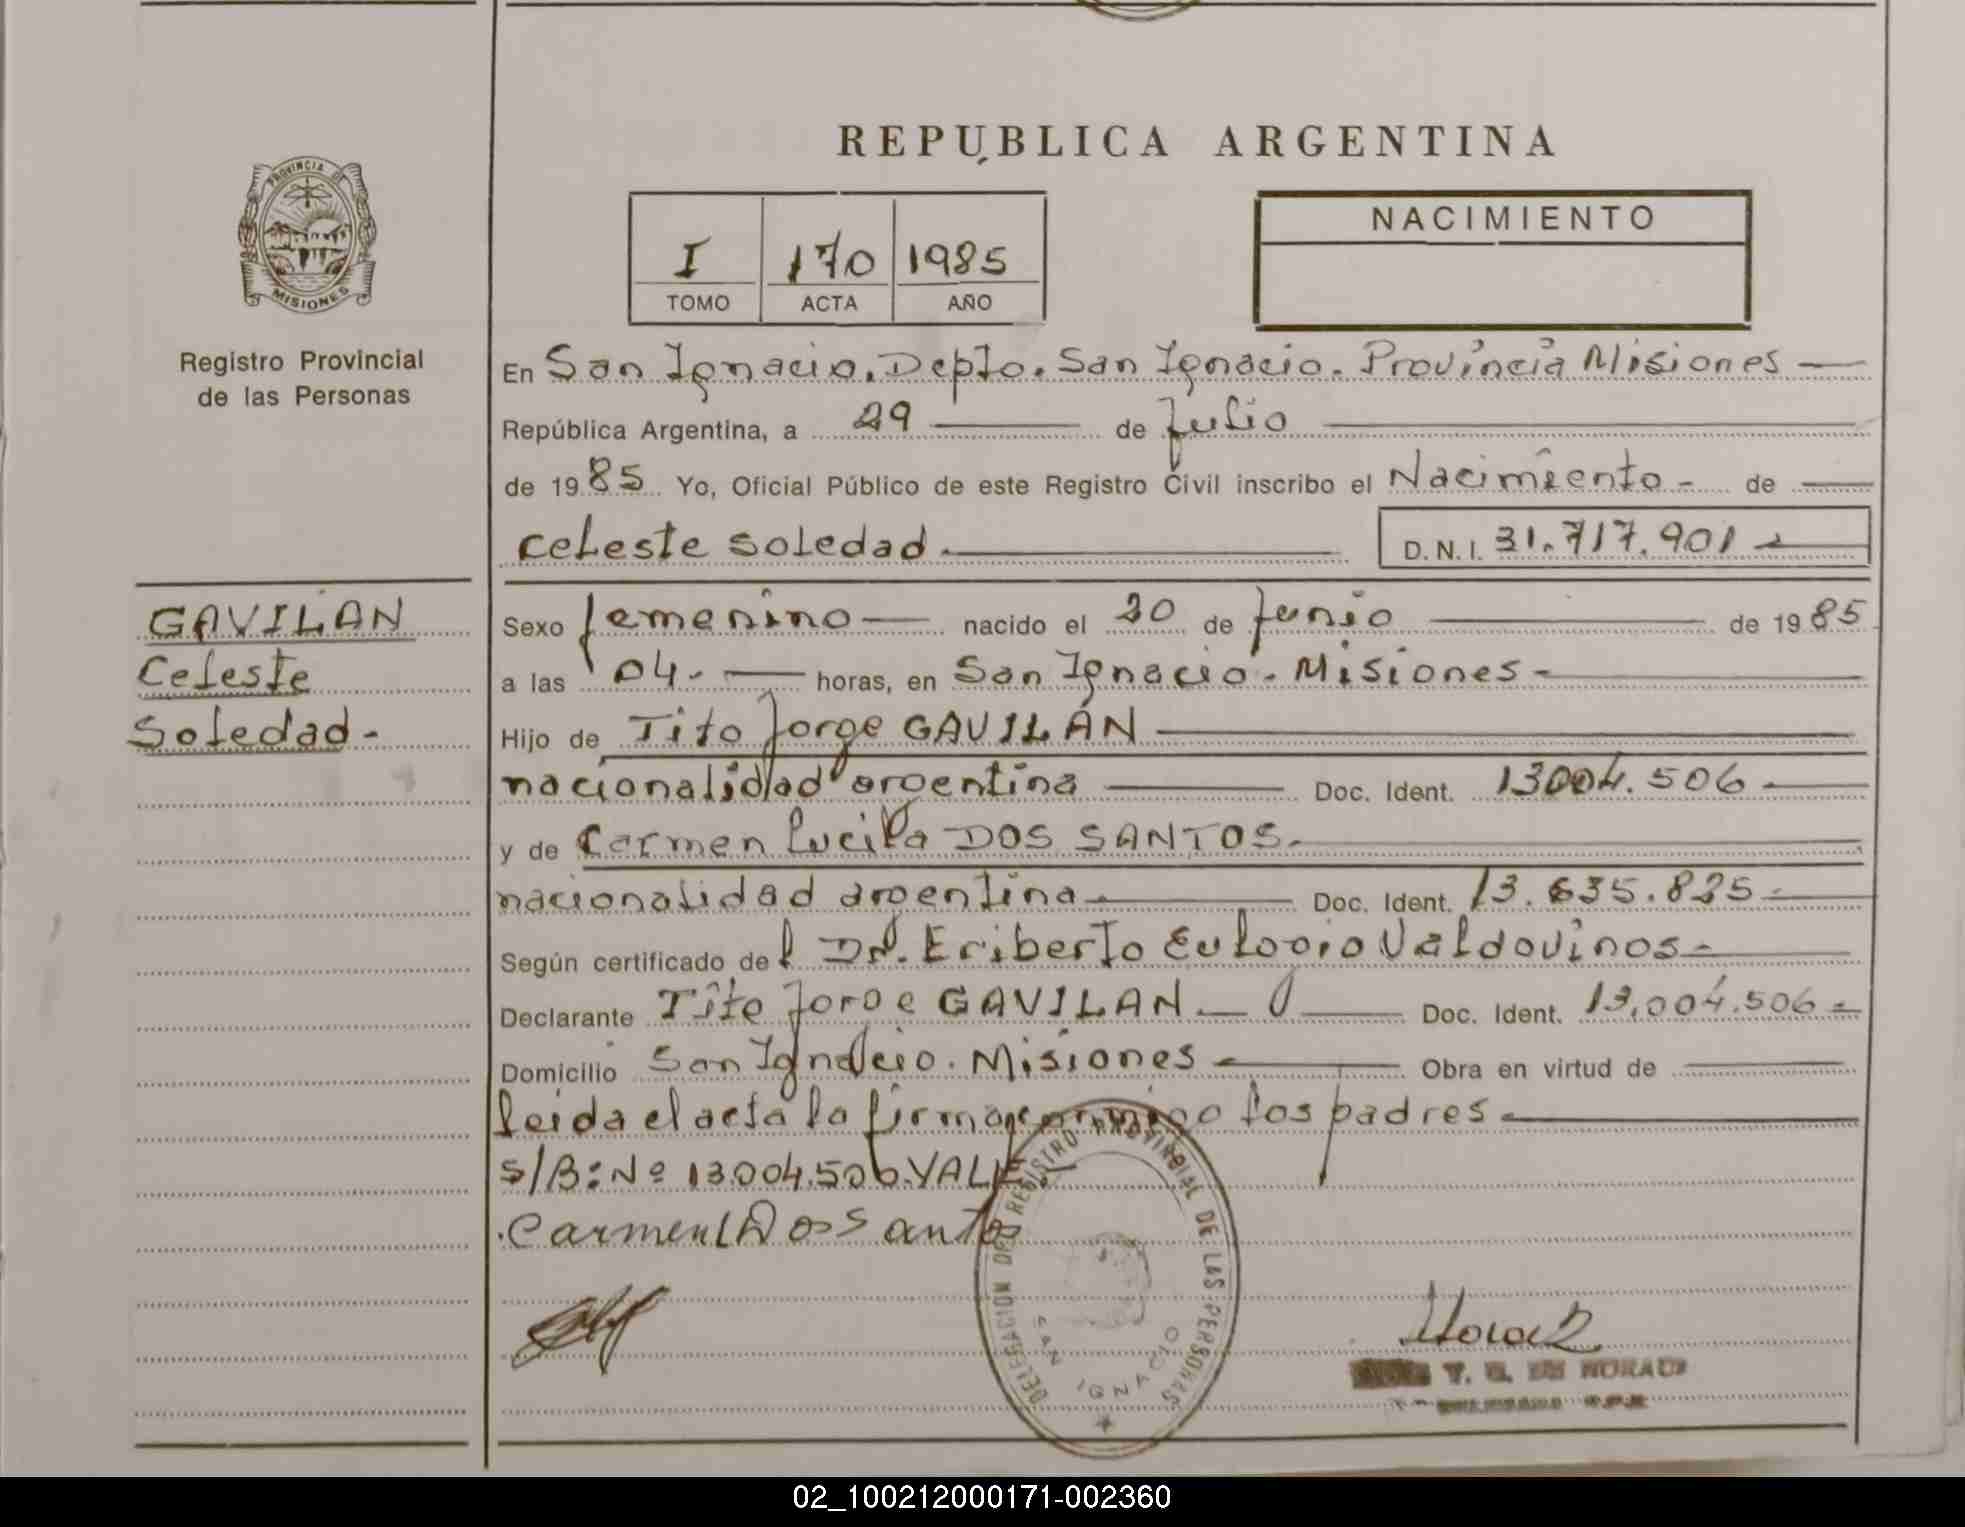 REPUBLICA ARGENTINA
PROVINCIA DE
MISIONES
Registro Provincial
de las Personas
I 170 1985
TOMO ACTA AÑO
NACIMIENTO
En San Ignacio. Depto. San Ignacio. Provincia Misiones
República Argentina, a 29 de Julio
de 1985 Yo, Oficial Público de este Registro Civil inscribo el Nacimiento - de
Celeste Soledad.
D. N. I. 31.717.901
GAVILAN
Celeste
Soledad -
Sexo femenino nacido el 20 de Junio de 1985
a las 04. horas, en San Ignacio. Misiones -
Hijo de Tito Jorge GAVILÁN
nacionalidad argentina Doc. Ident. 13004.506
y de Carmen Lucila DOS SANTOS.
nacionalidad argentina Doc. Ident. 13.635.825
Según certificado del Dr. Eriberto Eulogio Valdovinos
Declarante Tito Jorge GAVILAN Doc. Ident. 13.004.506
Domicilio San Ignacio. Misiones Obra en virtud de
leida el acta la firman conmigo los padres
S/B: Nº 13.004.506. VALE.
Carmen L Dos Santos
DELEGACION DEL REGISTRO PROVINCIAL DE LAS PERSONAS
SAN IGNACIO
02_100212000171-002360